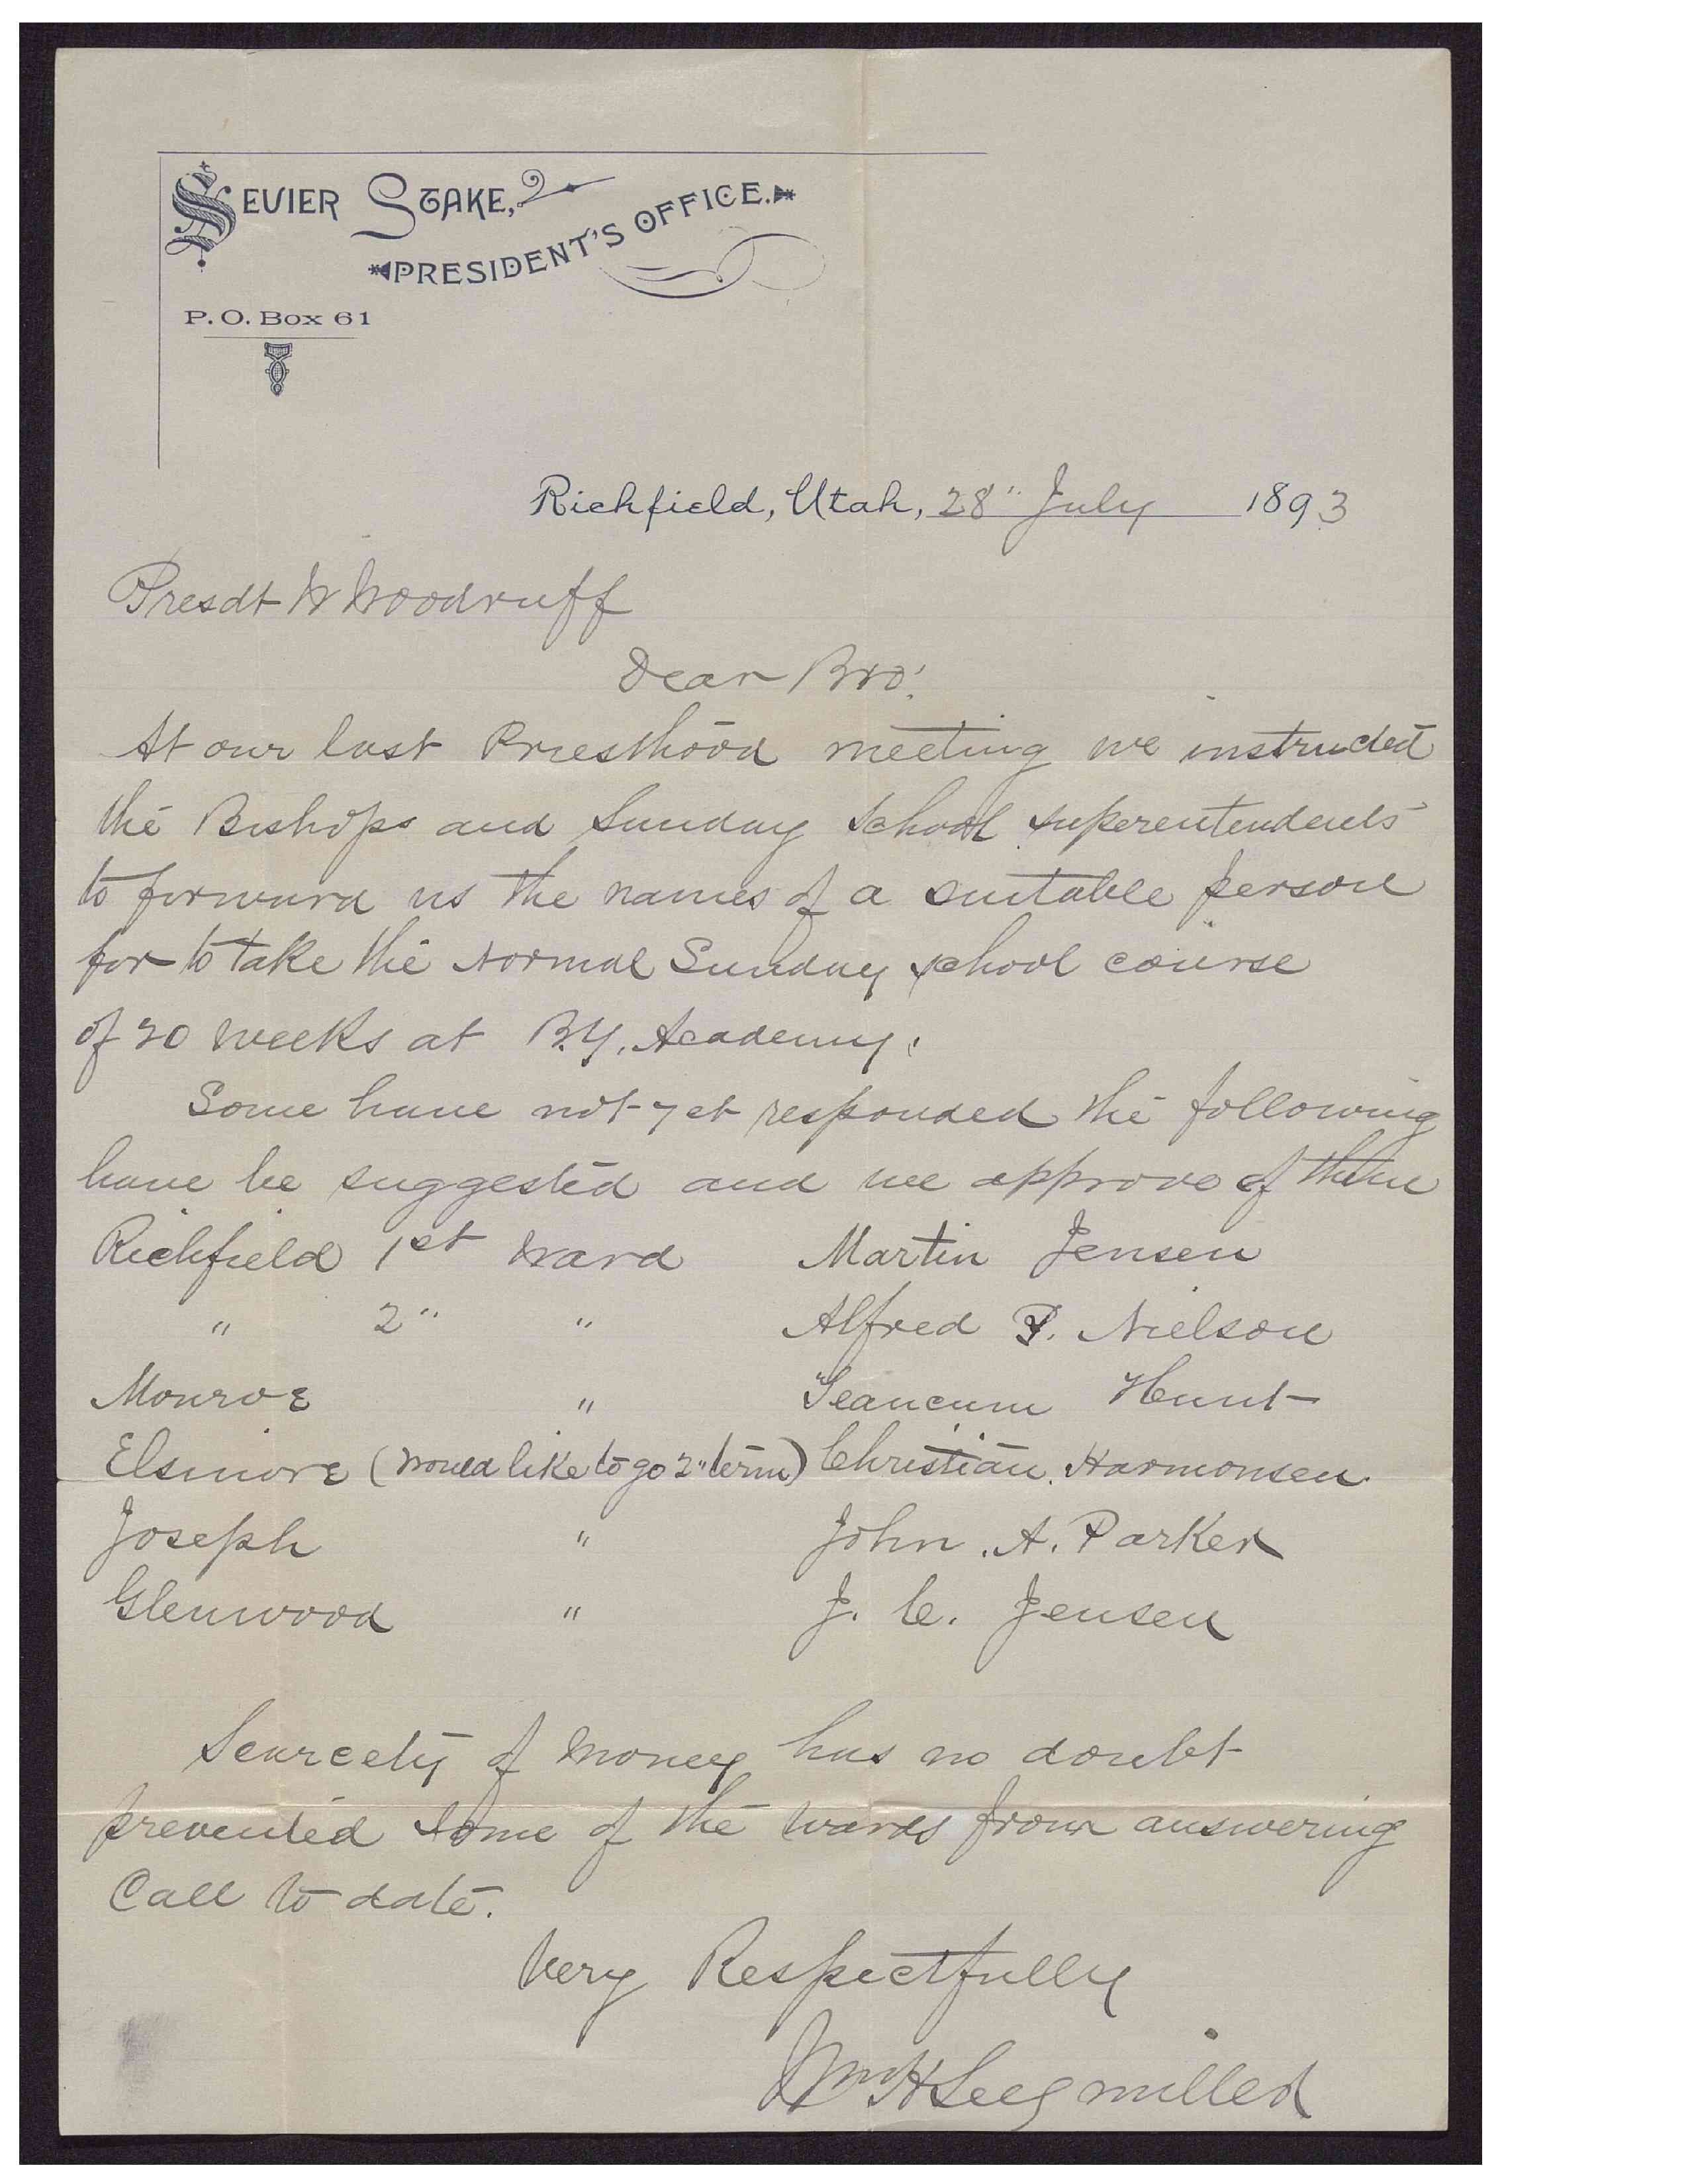 SEVIER STAKE,
PRESIDENT'S OFFICE.
P. O. Box 61
Richfield, Utah, 28" July 1893
Presdt W Woodruff
Dear Bro.
At our last Priesthood meeting we instructed
the Bishops and Sunday School superentendents
to forward us the names of a suitable person
for to take the Normal Sunday school course
of 20 weeks at B.Y. Academy.
Some have not yet responded the following
have be suggested and we approve of them
Richfield 1st Ward Martin Jensen
" 2" " Alfred P. Nielson
Monroe " Teancum Hunt
Elsinore (would like to go 2" term) Christian Harmonsen.
Joseph " John A. Parker
Glenwood " J. C. Jensen
Scarcety of money has no doubt
prevented some of the wards from answering
Call to date.
Very Respectfully
Wm H Seegmiller